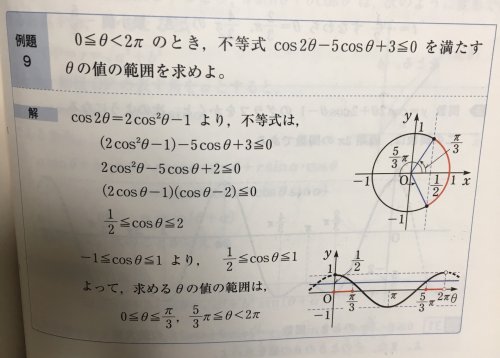 例題
9
0≦θ<2π のとき，不等式 cos2θ−5cosθ+3≦0 を満たす
θの値の範囲を求めよ。
解
cos2θ=2cos²θ−1 より，不等式は，
(2cos²θ−1)−5cosθ+3≦0
2cos²θ−5cosθ+2≦0
(2cosθ−1)(cosθ−2)≦0
1/2≦cosθ≦2
−1≦cosθ≦1 より， 1/2≦cosθ≦1
よって，求めるθの値の範囲は，
0≦θ≦π/3，5/3π≦θ<2π
y
1
π/3
5/3π
−1
O
1/2
1
x
−1
y
1
1/2
O
π/3
π
5/3π
2π
θ
−1